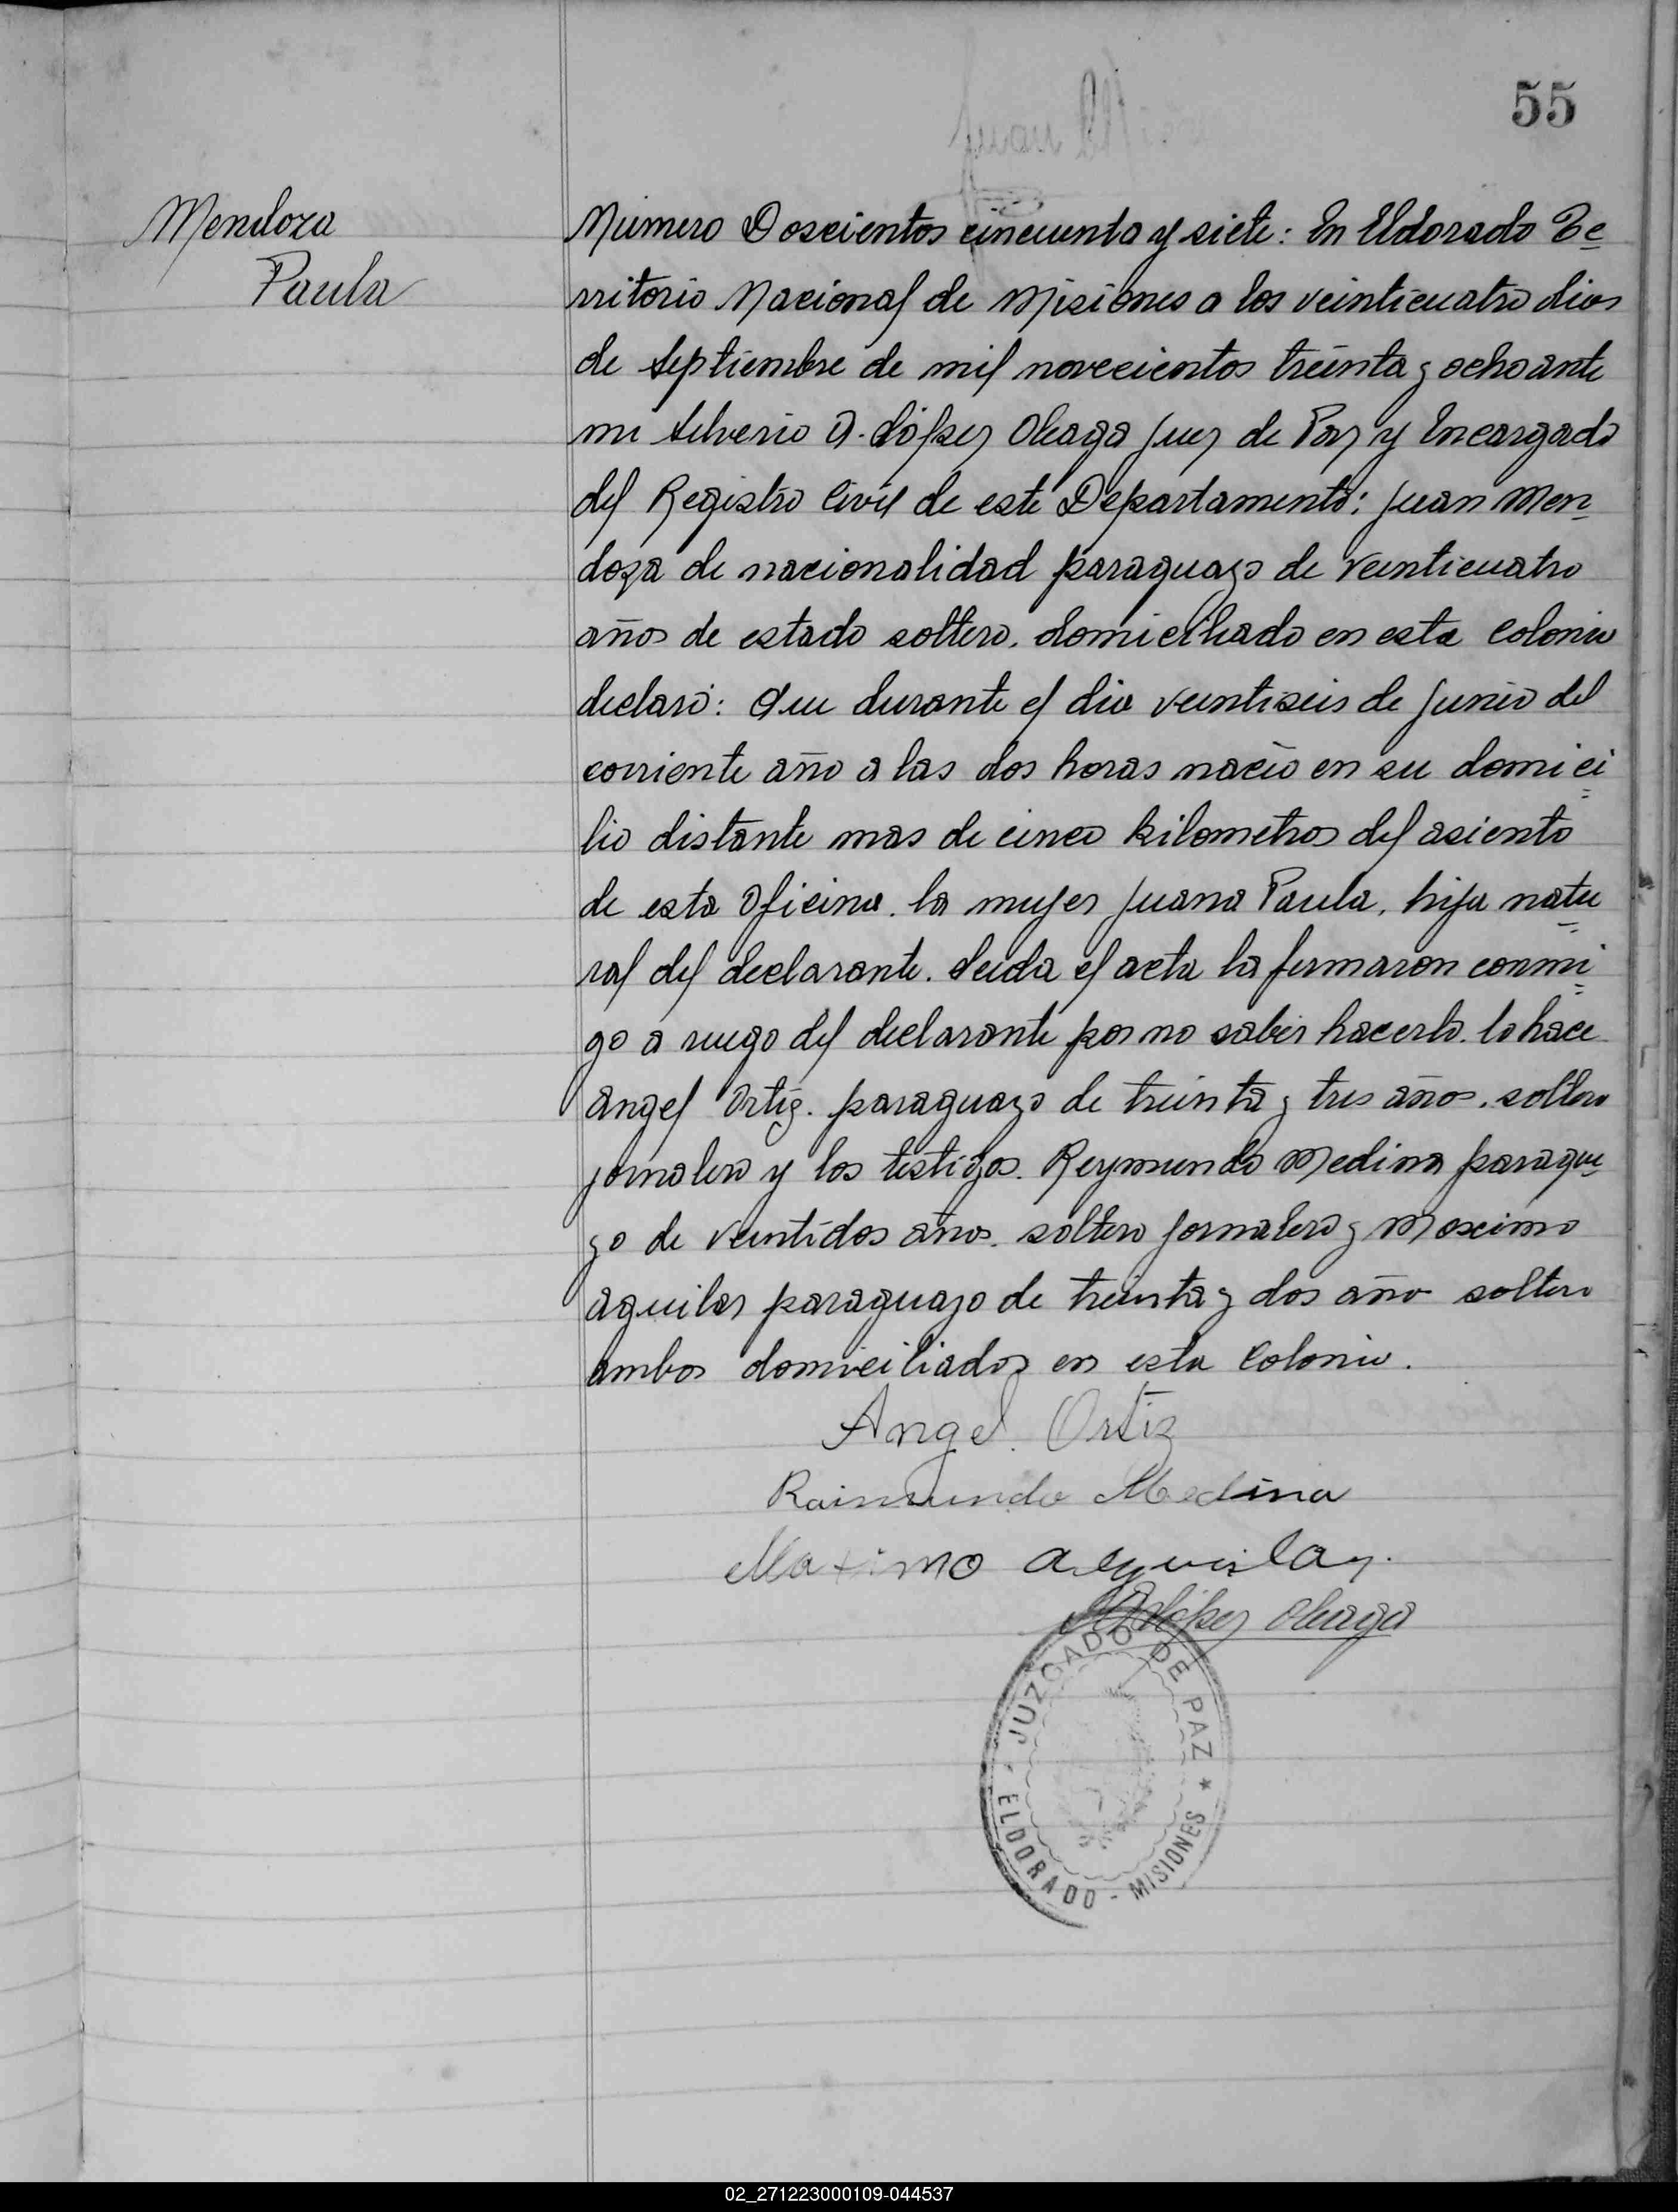 55
Mendoza
Paula
Número Doscientos cincuenta y siete: En Eldorado Te
rritorio Nacional de Misiones a los veinticuatro dias
de Septiembre de mil novecientos treinta y ocho ante
mi Silverio A. López Oleaga Juez de Paz y Encargado
del Registro Civil de este Departamento: Juan Men
doza de nacionalidad paraguayo de veinticuatro
años de estado soltero. domiciliado en esta Colonia
declaró: Que durante el dia veintiseis de Junio del
corriente año a las dos horas nació en su domici
lio distante mas de cinco kilometros del asiento
de esta Oficina. la mujer Juana Paula. hija natu
ral del declarante. Leida el acta la firmaron conmi
go a ruego del declarante por no saber hacerlo. lo hace
Angel Ortiz. paraguayo de treinta y tres años. soltero
jornalero y los testigos. Reymundo Medina paragua
yo de veintidos años. soltero jornalero y Maximo
Aguilar paraguayo de treinta y dos año soltero
ambos domiciliados en esta Colonia.
Angel. Ortiz
Raimundo Medina
Maximo aguilar.
López Oleaga
JUZGADO DE PAZ *
ELDORADO - MISIONES
02_271223000109-044537